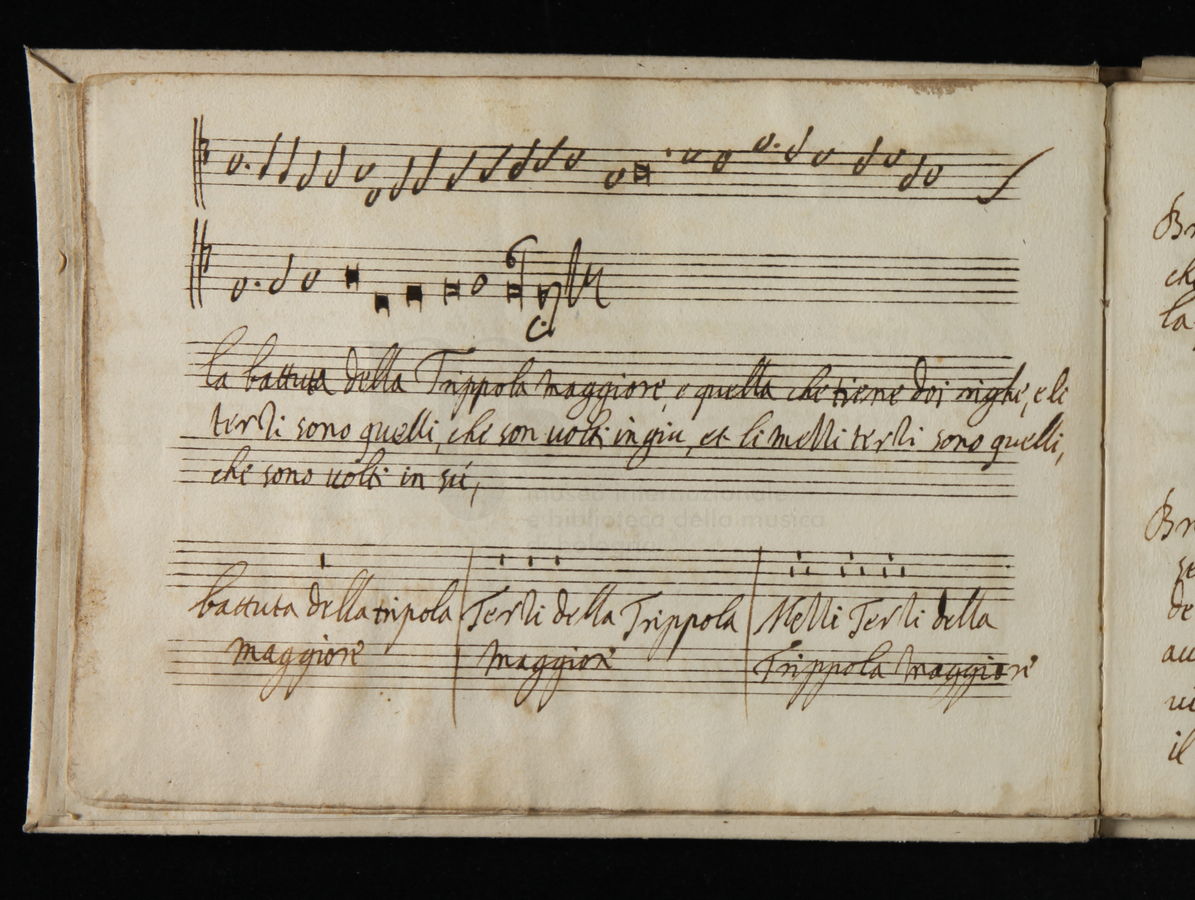 la battuta della Trippola maggiore, e quella che tiene doi righe, e le
terzi sono quelli, che son uolti in giu, et li mezzi terzi sono quelli,
che sono uolti in sú,
museo internazionale
e biblioteca della musica
di bologna
battuta della tripola
maggiore
Terzi della Trippola
maggiore
Mezzi Terzi della
Trippola maggiore
Br
la
Br
de
il